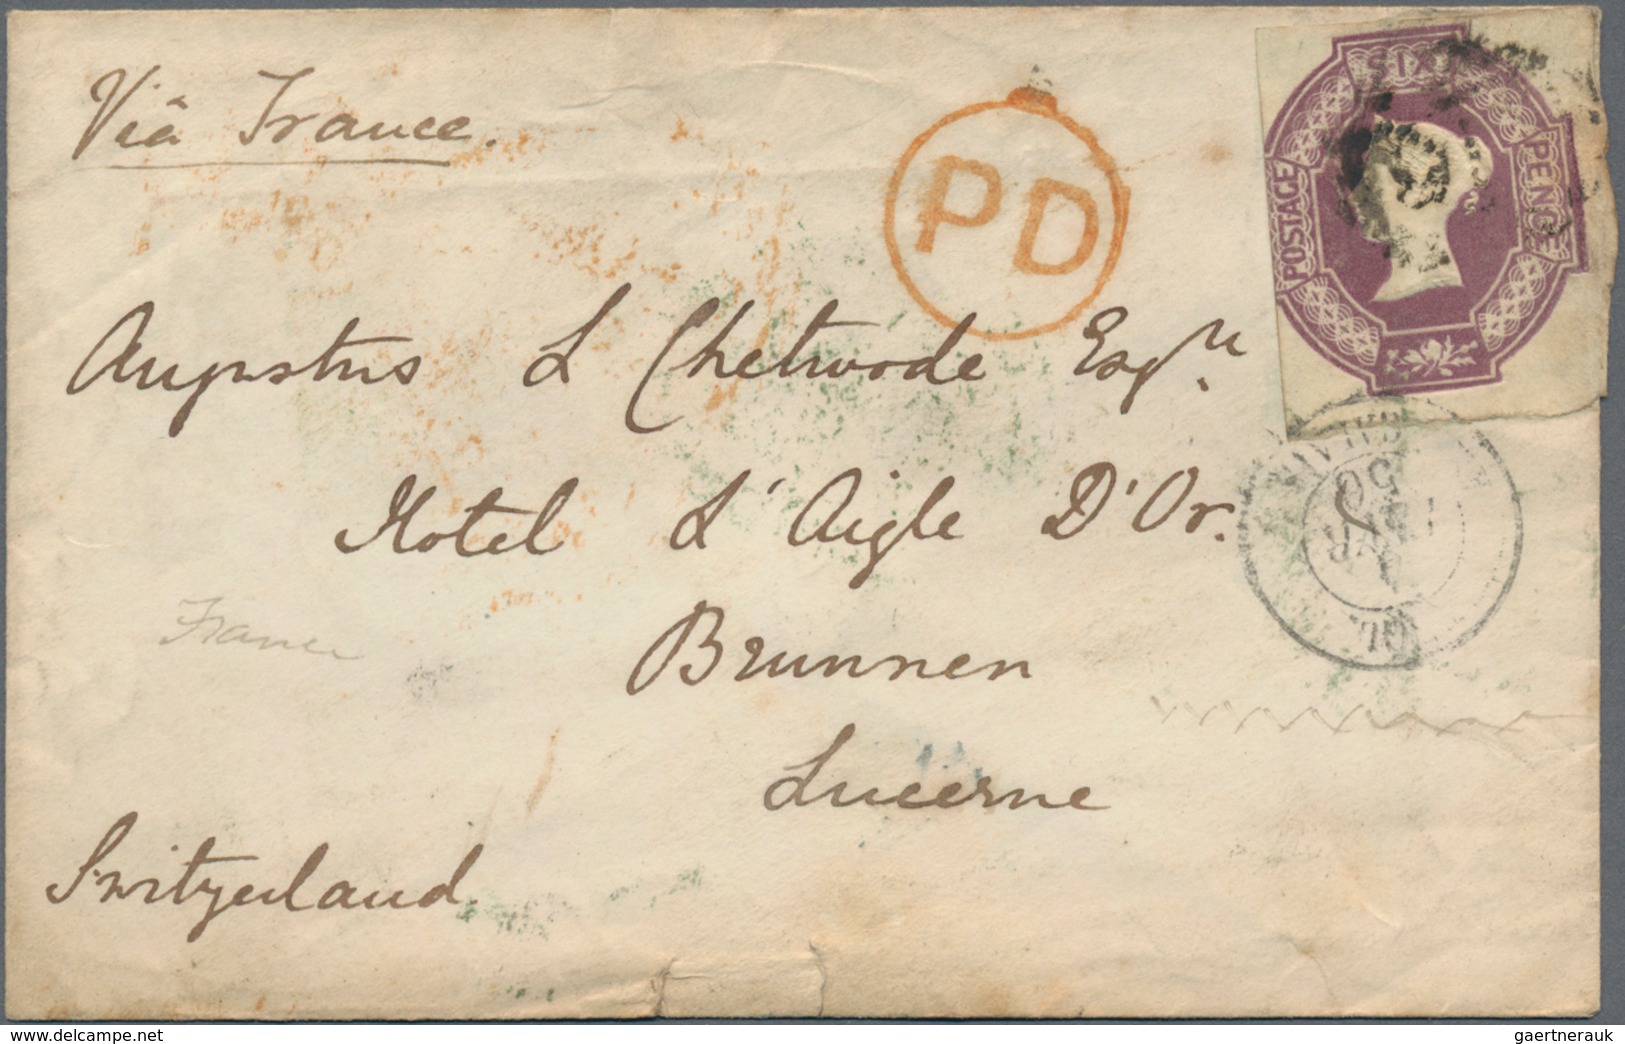 Viâ France.
PD
SIX
PENCE
POSTAGE
Augustus L Chetwode Esqre
Hotel L'Aigle D'Or.
France
Brunnen
Lucerne
Switzerland.
delcampe.net
gaertnerauk